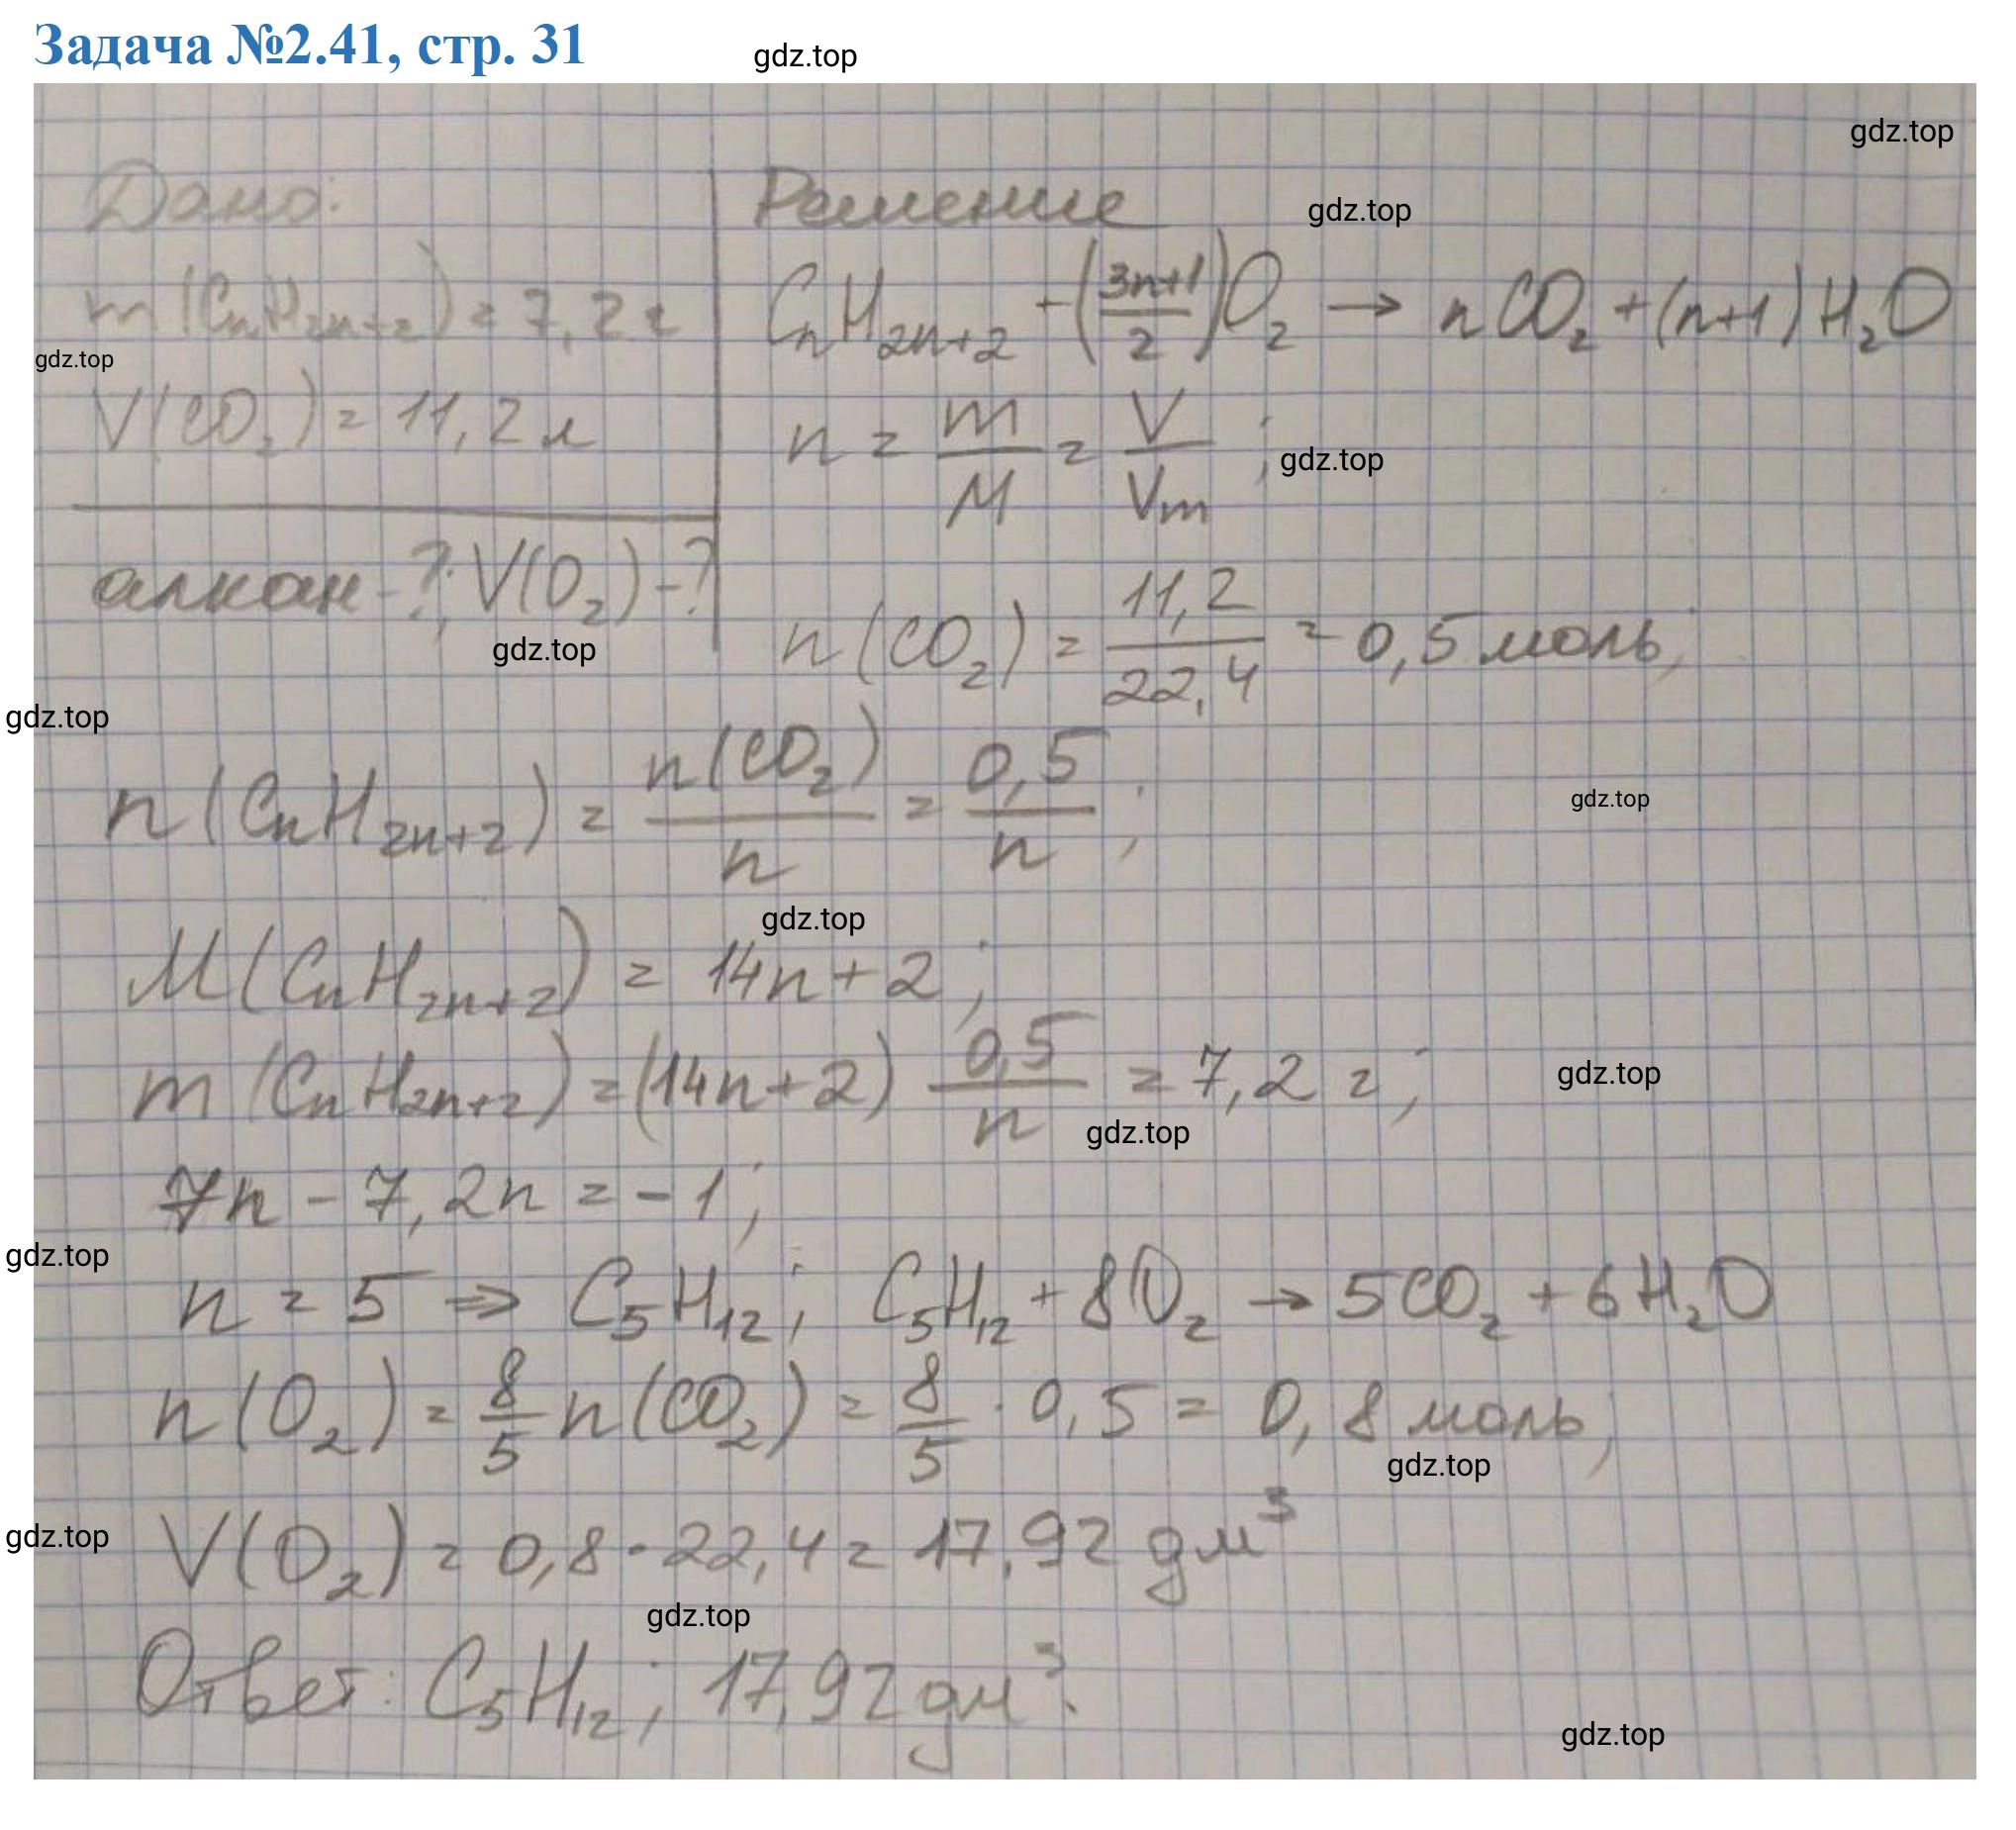 Задача №2.41, стр. 31
gdz.top
gdz.top
Дано:
m(CnH2n+2) = 7,2 г
gdz.top
V(CO2) = 11,2 л
алкан-?; V(O2)-?
gdz.top
Решение
gdz.top
CnH2n+2 + (3n+1/2)O2 → nCO2 + (n+1)H2O
n = m/M = V/Vm ;
gdz.top
n(CO2) = 11,2/22,4 = 0,5 моль;
gdz.top
n(CnH2n+2) = n(CO2)/n = 0,5/n ;
gdz.top
gdz.top
M(CnH2n+2) = 14n+2 ;
m(CnH2n+2) = (14n+2) 0,5/n = 7,2 г ;
gdz.top
gdz.top
7n - 7,2n = -1 ;
gdz.top
n = 5 ⇒ C5H12 ; C5H12 + 8O2 → 5CO2 + 6H2O
n(O2) = 8/5 n(CO2) = 8/5 · 0,5 = 0,8 моль;
gdz.top
gdz.top
V(O2) = 0,8 · 22,4 = 17,92 дм³
gdz.top
Ответ: C5H12 ; 17,92 дм³.
gdz.top